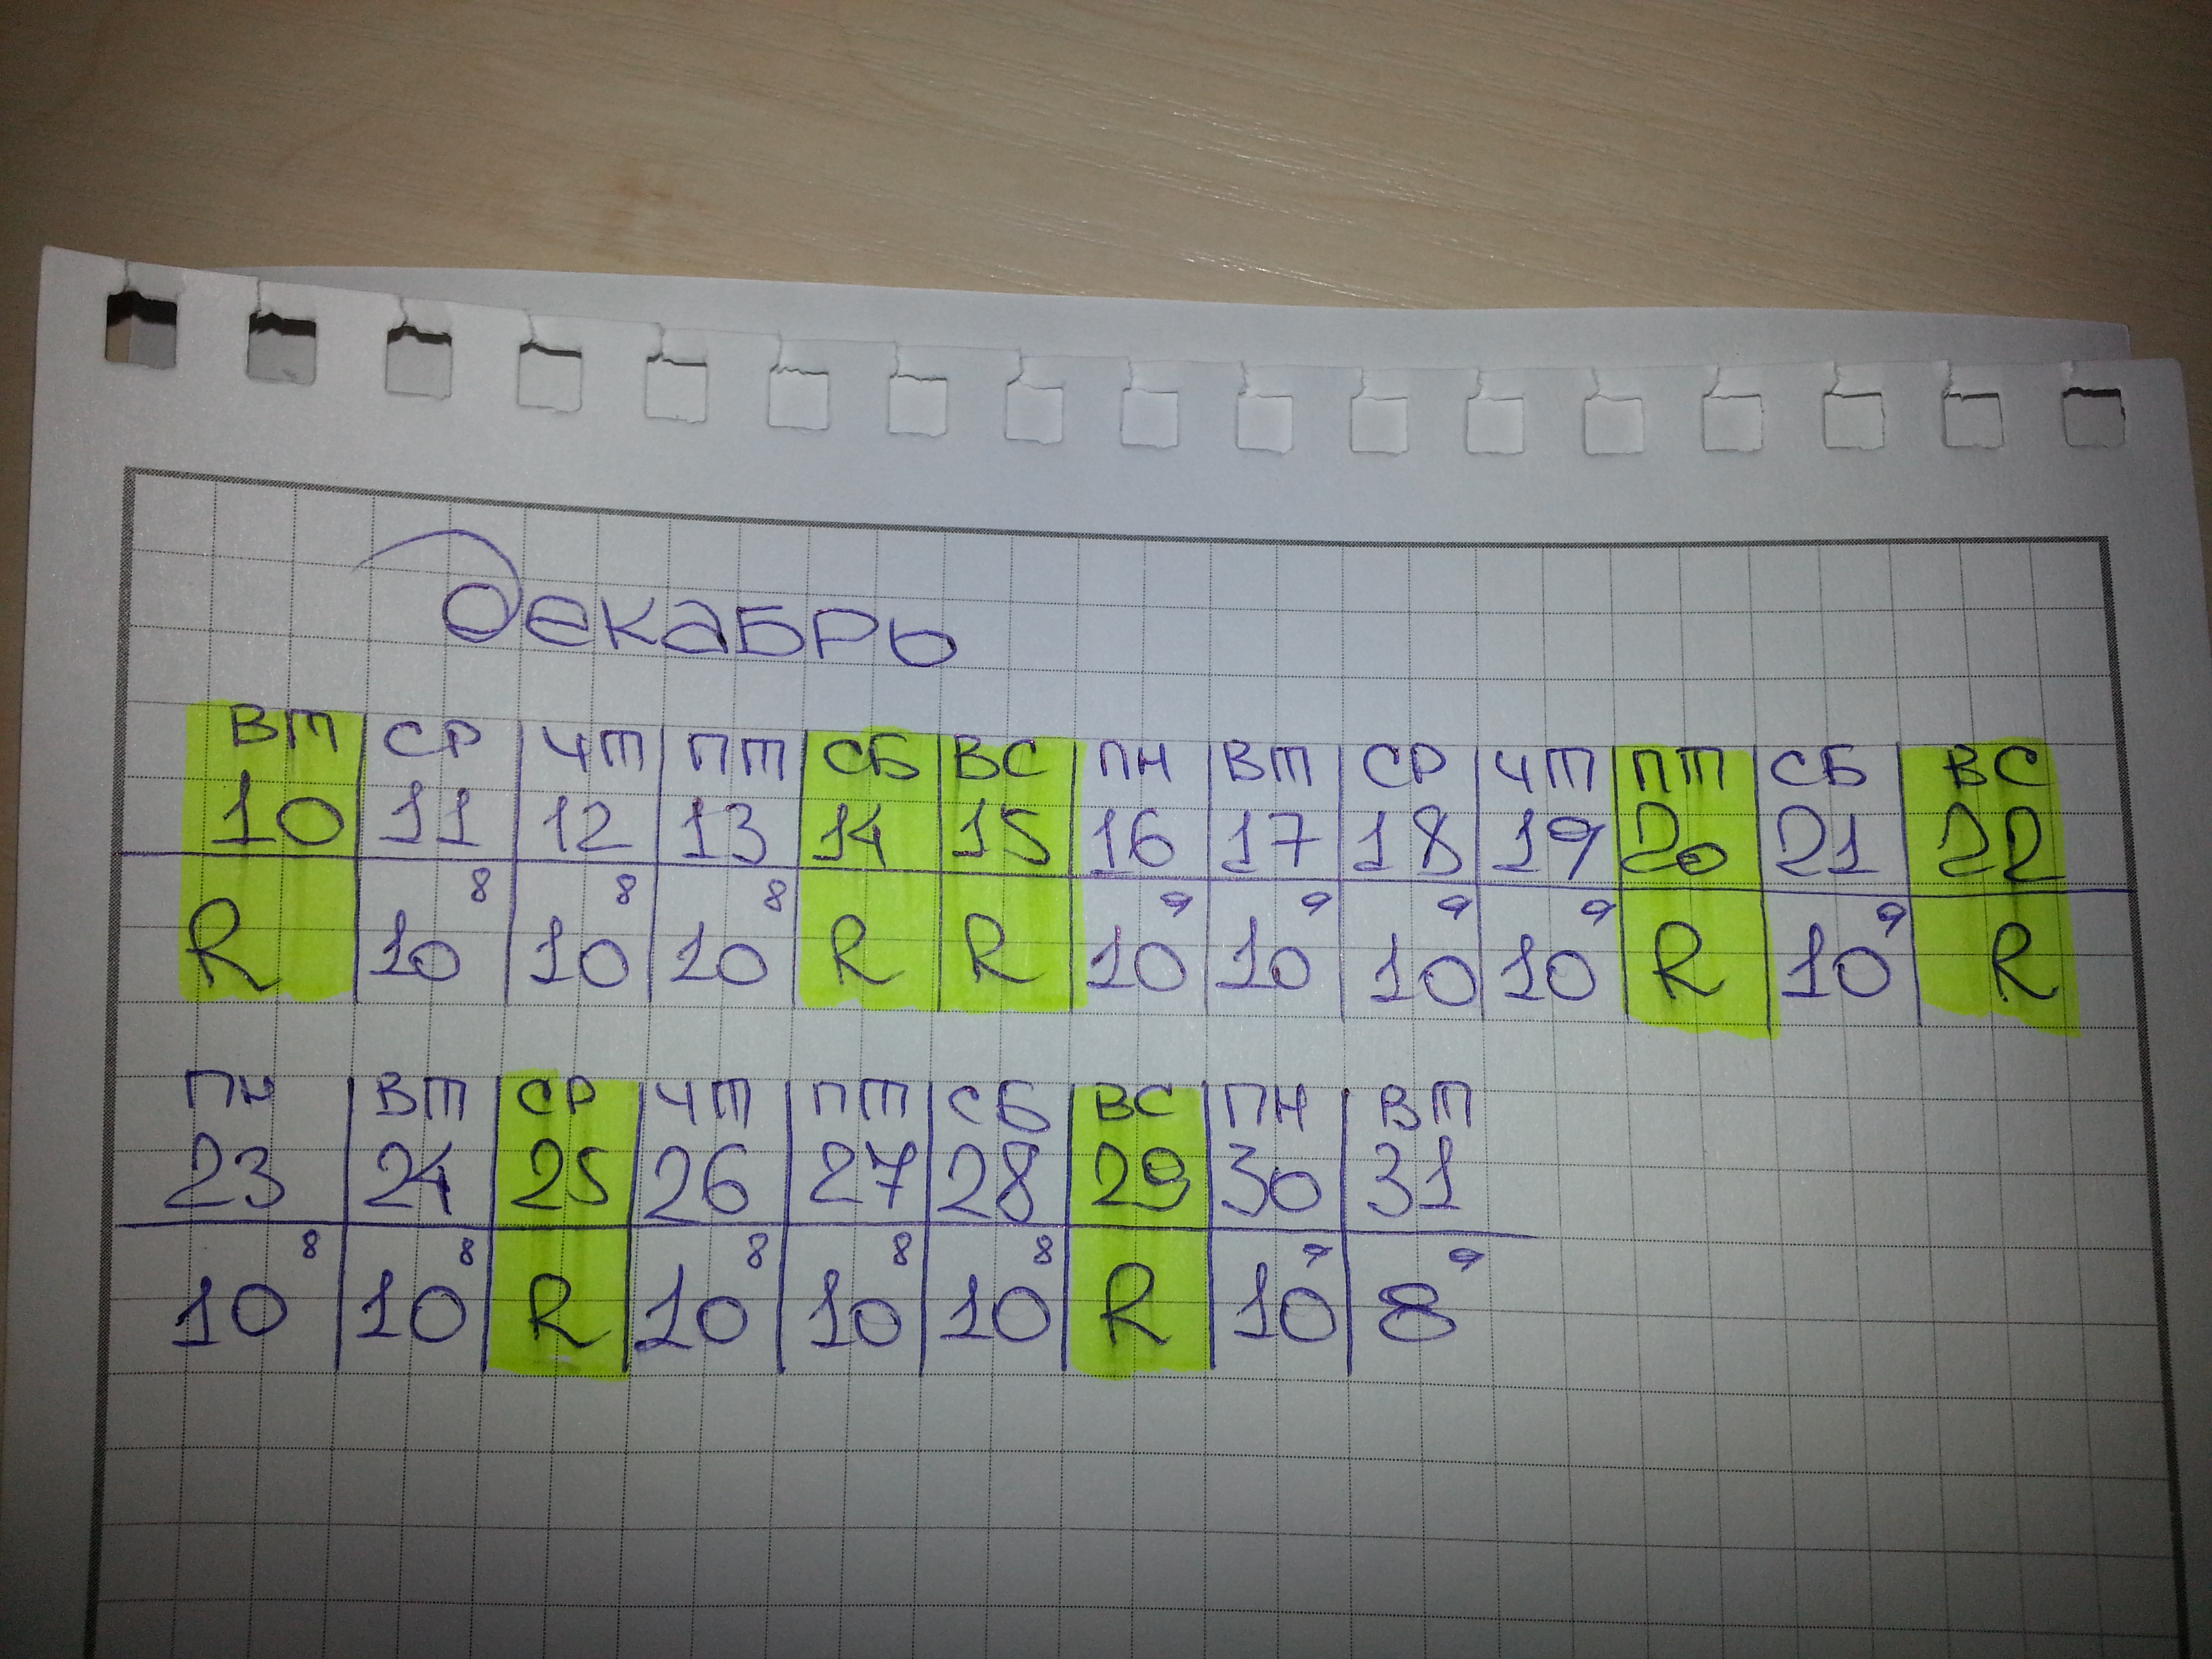 декабрь
ВТ СР ЧТ ПТ СБ ВС ПН ВТ СР ЧТ ПТ СБ ВС
10 11 12 13 14 15 16 17 18 19 20 21 22
8 8 8 9 9 9 9 9
R 10 10 10 R R 10 10 10 10 R 10 R
ПН ВТ СР ЧТ ПТ СБ ВС ПН ВТ
23 24 25 26 27 28 29 30 31
8 8 8 8 8 9 9
10 10 R 10 10 10 R 10 8